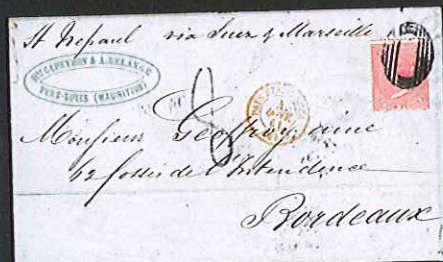 St Nepaul via Suez & Marseille
& A. BELANGE
PORT-LOUIS (MAURITIUS)
Monsieur Geoffroy aîné
62 fossés de l'Intendence
Bordeaux